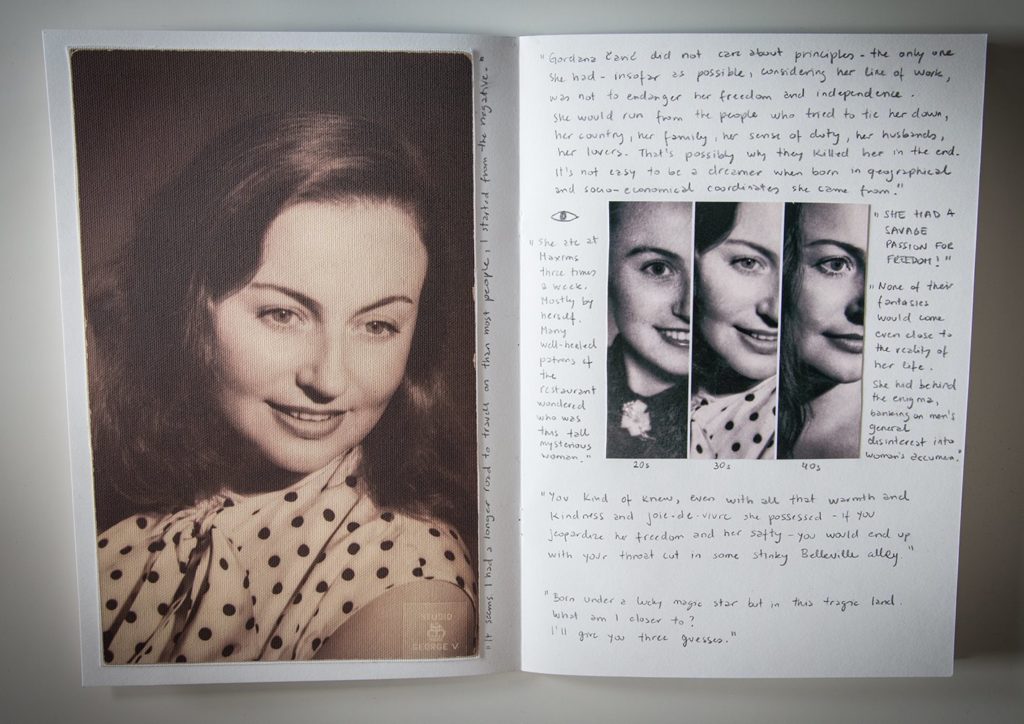 "It seems I had a longer road to travels on than most people, I started from the negative."
STUDIO
GEORGE V
"Gordana Čavić did not care about principles - the only one
she had - insofar as possible, considering her line of work,
was not to endanger her freedom and independence.
She would run from the people who tried to tie her down,
her country, her family, her sense of duty, her husbands,
her lovers. That's possibly why they killed her in the end.
It's not easy to be a dreamer when born in geographical
and socio-economical coordinates she came from."
"She ate at
Maxims
three times
a week.
Mostly by
herself.
Many
well-healed
patrons of
the
restaurant
wondered
who was
this tall
mysterious
woman."
20s
30s
40s
"SHE HAD A
SAVAGE
PASSION FOR
FREEDOM!"
"None of their
fantasies
would come
even close to
the reality of
her life.
She hid behind
the enigma,
banking on men's
general
disinterest into
woman's acumen."
"You kind of knew, even with all that warmth and
kindness and joie-de-vivre she possessed - if you
jeopardize her freedom and her safty - you would end up
with your throat cut in some stinky Belleville alley."
"Born under a lucky magic star but in this tragic land.
What am I closer to?
I'll give you three guesses."